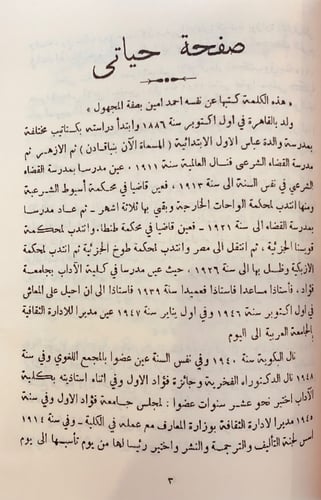 صفحة حياتى
« هذه الكلمة كتبها عن نفسه احمد امين بصفة المجهول »
ولد بالقاهرة في اول اكتوبر سنة ١٨٨٦ وابتدأ دراسته بكتاتيب مختلفة
بمدرسة والدة عباس الاول الابتدائية ( المسماة الآن بنباقادن ) ثم الازهر ثم
مدرسة القضاء الشرعى فنال العالمية سنة ١٩١١ ، عين مدرسا بمدرسة القضاء
الشرعي في نفس السنة الى سنة ١٩١٣ ، فعين قاضيا في محكمة أسيوط الشرعية
ومنها انتدب لمحكمة الواحات الخارجة وبقي بها ثلاثة اشهر - ثم عاد مدرسا
بمدرسة القضاء الى سنة ١٩٢١ - فعين قاضيا في محكمة طنطا، وانتدب لمحكمة
قويسنا الجزئية ، ثم انتقل الى مصر وانتدب لمحكمة طوخ الجزئية ثم لمحكمة
الازبكية وظل بها الى سنة ١٩٢٦ ، حيث عين مدرسا في كلية الآداب بجامعة
فؤاد ، فأستاذا مساعدا فاستاذا فعميدا سنة ١٩٣٩ فاستاذا الى ان احيل على المعاش
في اول اكتوبر سنة ١٩٤٦ وفي اول يناير سنة ١٩٤٧ عين مديرا للادارة الثقافية
بالجامعة العربية الى اليوم
نال البكوية سنة ١٩٤٠ وفي نفس السنة عين عضوا بالمجمع اللغوي وفي سنة
١٩٤٨ نال الدكتوراه الفخرية وجائزة فؤاد الاول وفي اثناء استاذيته بكلية
الآداب اختير نحو عشر سنوات عضوا : لمجلس جامعة فؤاد الاول وفي سنة
١٩٤٥ مديرا للادارة الثقافية بوزارة المعارف مع عمله في الكلية - وفي سنة ١٩١٤
اسس لجنة التأليف والترجمة والنشر واختير رئيسا لها من يوم تأسيسها الى يوم
٣